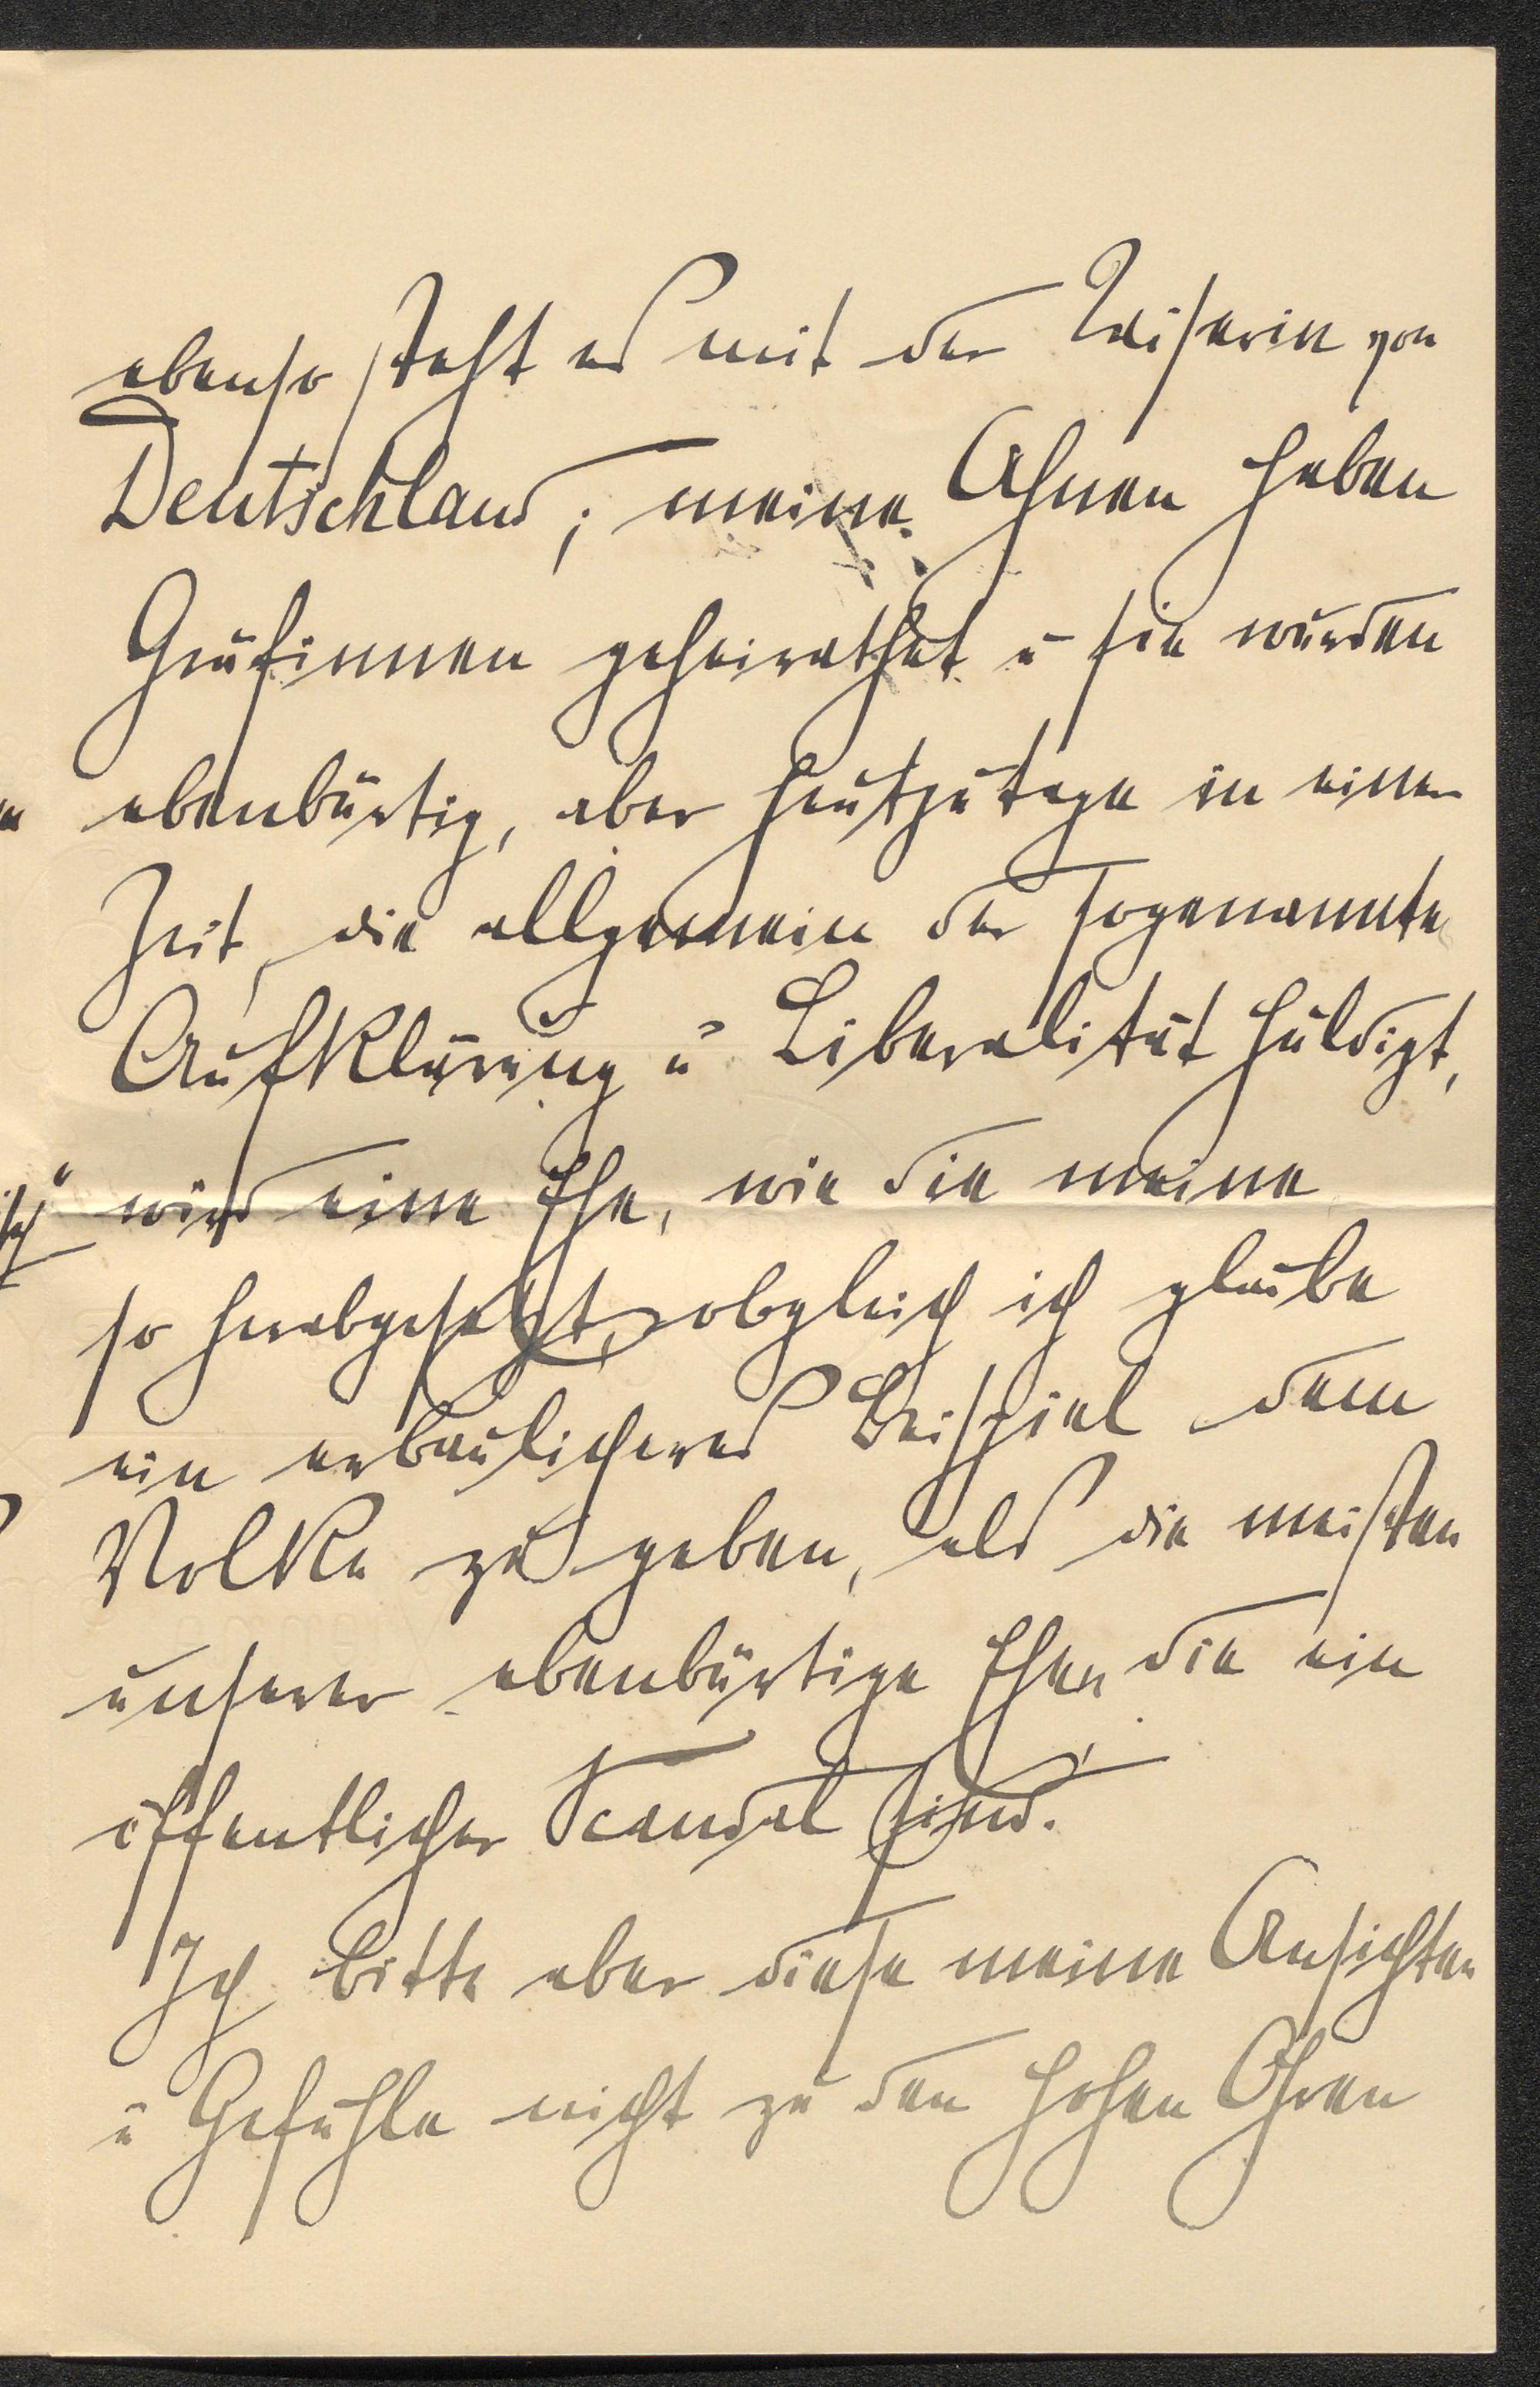 ebenso steht es mit der Kaiserin von
Deutschland; meine Ahnen haben
Gräfinnen geheirathet u sie wurden
ebenbürtig, aber heutzutage in einer
Zeit, die allgemein der sogenannte
Aufklärung u Liberalität huldigt,
wird eine Ehe, wie die meine
so herabgesetzt, obgleich ich glaube
ein erbaulicheres Beispiel dem
Volke zu geben, als die meisten
unserer ebenbürtige Ehen die ein
öffentlicher Scandal sind.
Ich bitte aber diese meine Ansichten
u Gefühle nicht zu den hohen Ohren